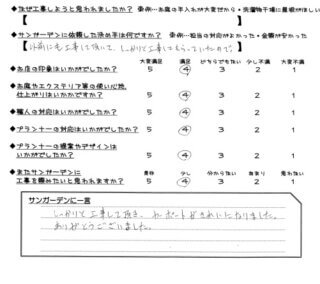 ◆なぜ工事しようと思われましたか? 条例…お庭の手入れが大変だから・洗濯物干場に屋根がほしい
【 】
◆サンガーデンに依頼した決め手は何ですか? 条例…担当の対応がよかった・金額が安かった
【以前にも工事して頂いて、しっかりと工事してもらっていたので 】
大変満足 満足 どちらでもない 少し不満 大変不満
◆お店の印象はいかがでしたか? 5 4 3 2 1
◆お庭やエクステリア等の使い心地、
仕上がりはいかがですか? 5 4 3 2 1
◆職人の対応はいかがでしたか? 5 4 3 2 1
◆プランナーの対応はいかがでしたか? 5 4 3 2 1
◆プランナーの提案やデザインは
いかがでしたか? 5 4 3 2 1
◆またサンガーデンに 少し 分からない あまり 思わない
工事を頼みたいと思われますか? 5 4 3 2 1
サンガーデンに一言
しっかりと工事して頂き、カーポートがきれいになりました。
ありがとうございました。